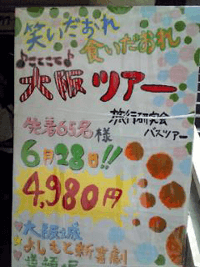 笑いだおれ
食いだおれ
よこそこそよ
大阪ツアー
旅行研究会
バスツアー
先着65名様
6月28日!!
4,980円
大阪城
よしもと新喜劇
道頓堀